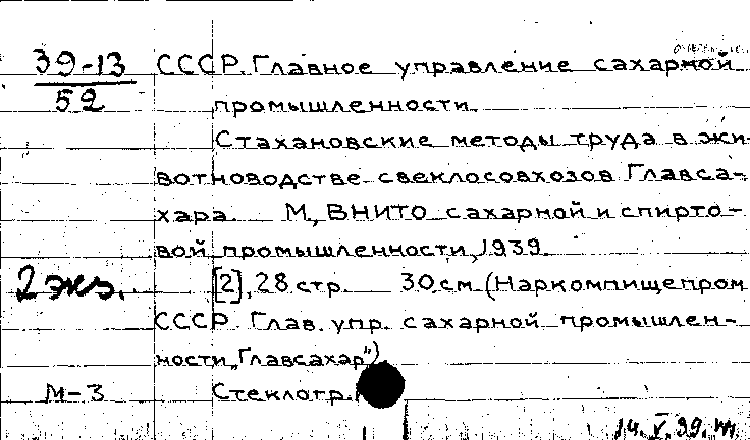 39-13 СССР. Главное управление сахарной
52 промышленности.
Стахановские методы труда в жи-
вотноводстве свеклосовхозов Главса-
хара. М., ВНИТО сахарной и спирто-
вой промышленности, 1939.
2 экз. [2], 28 стр. 30 см. (Наркомпищепром
СССР. Глав. упр. сахарной промышлен-
ности „Главсахар")
М-3 Стеклогр.
14.V.39.